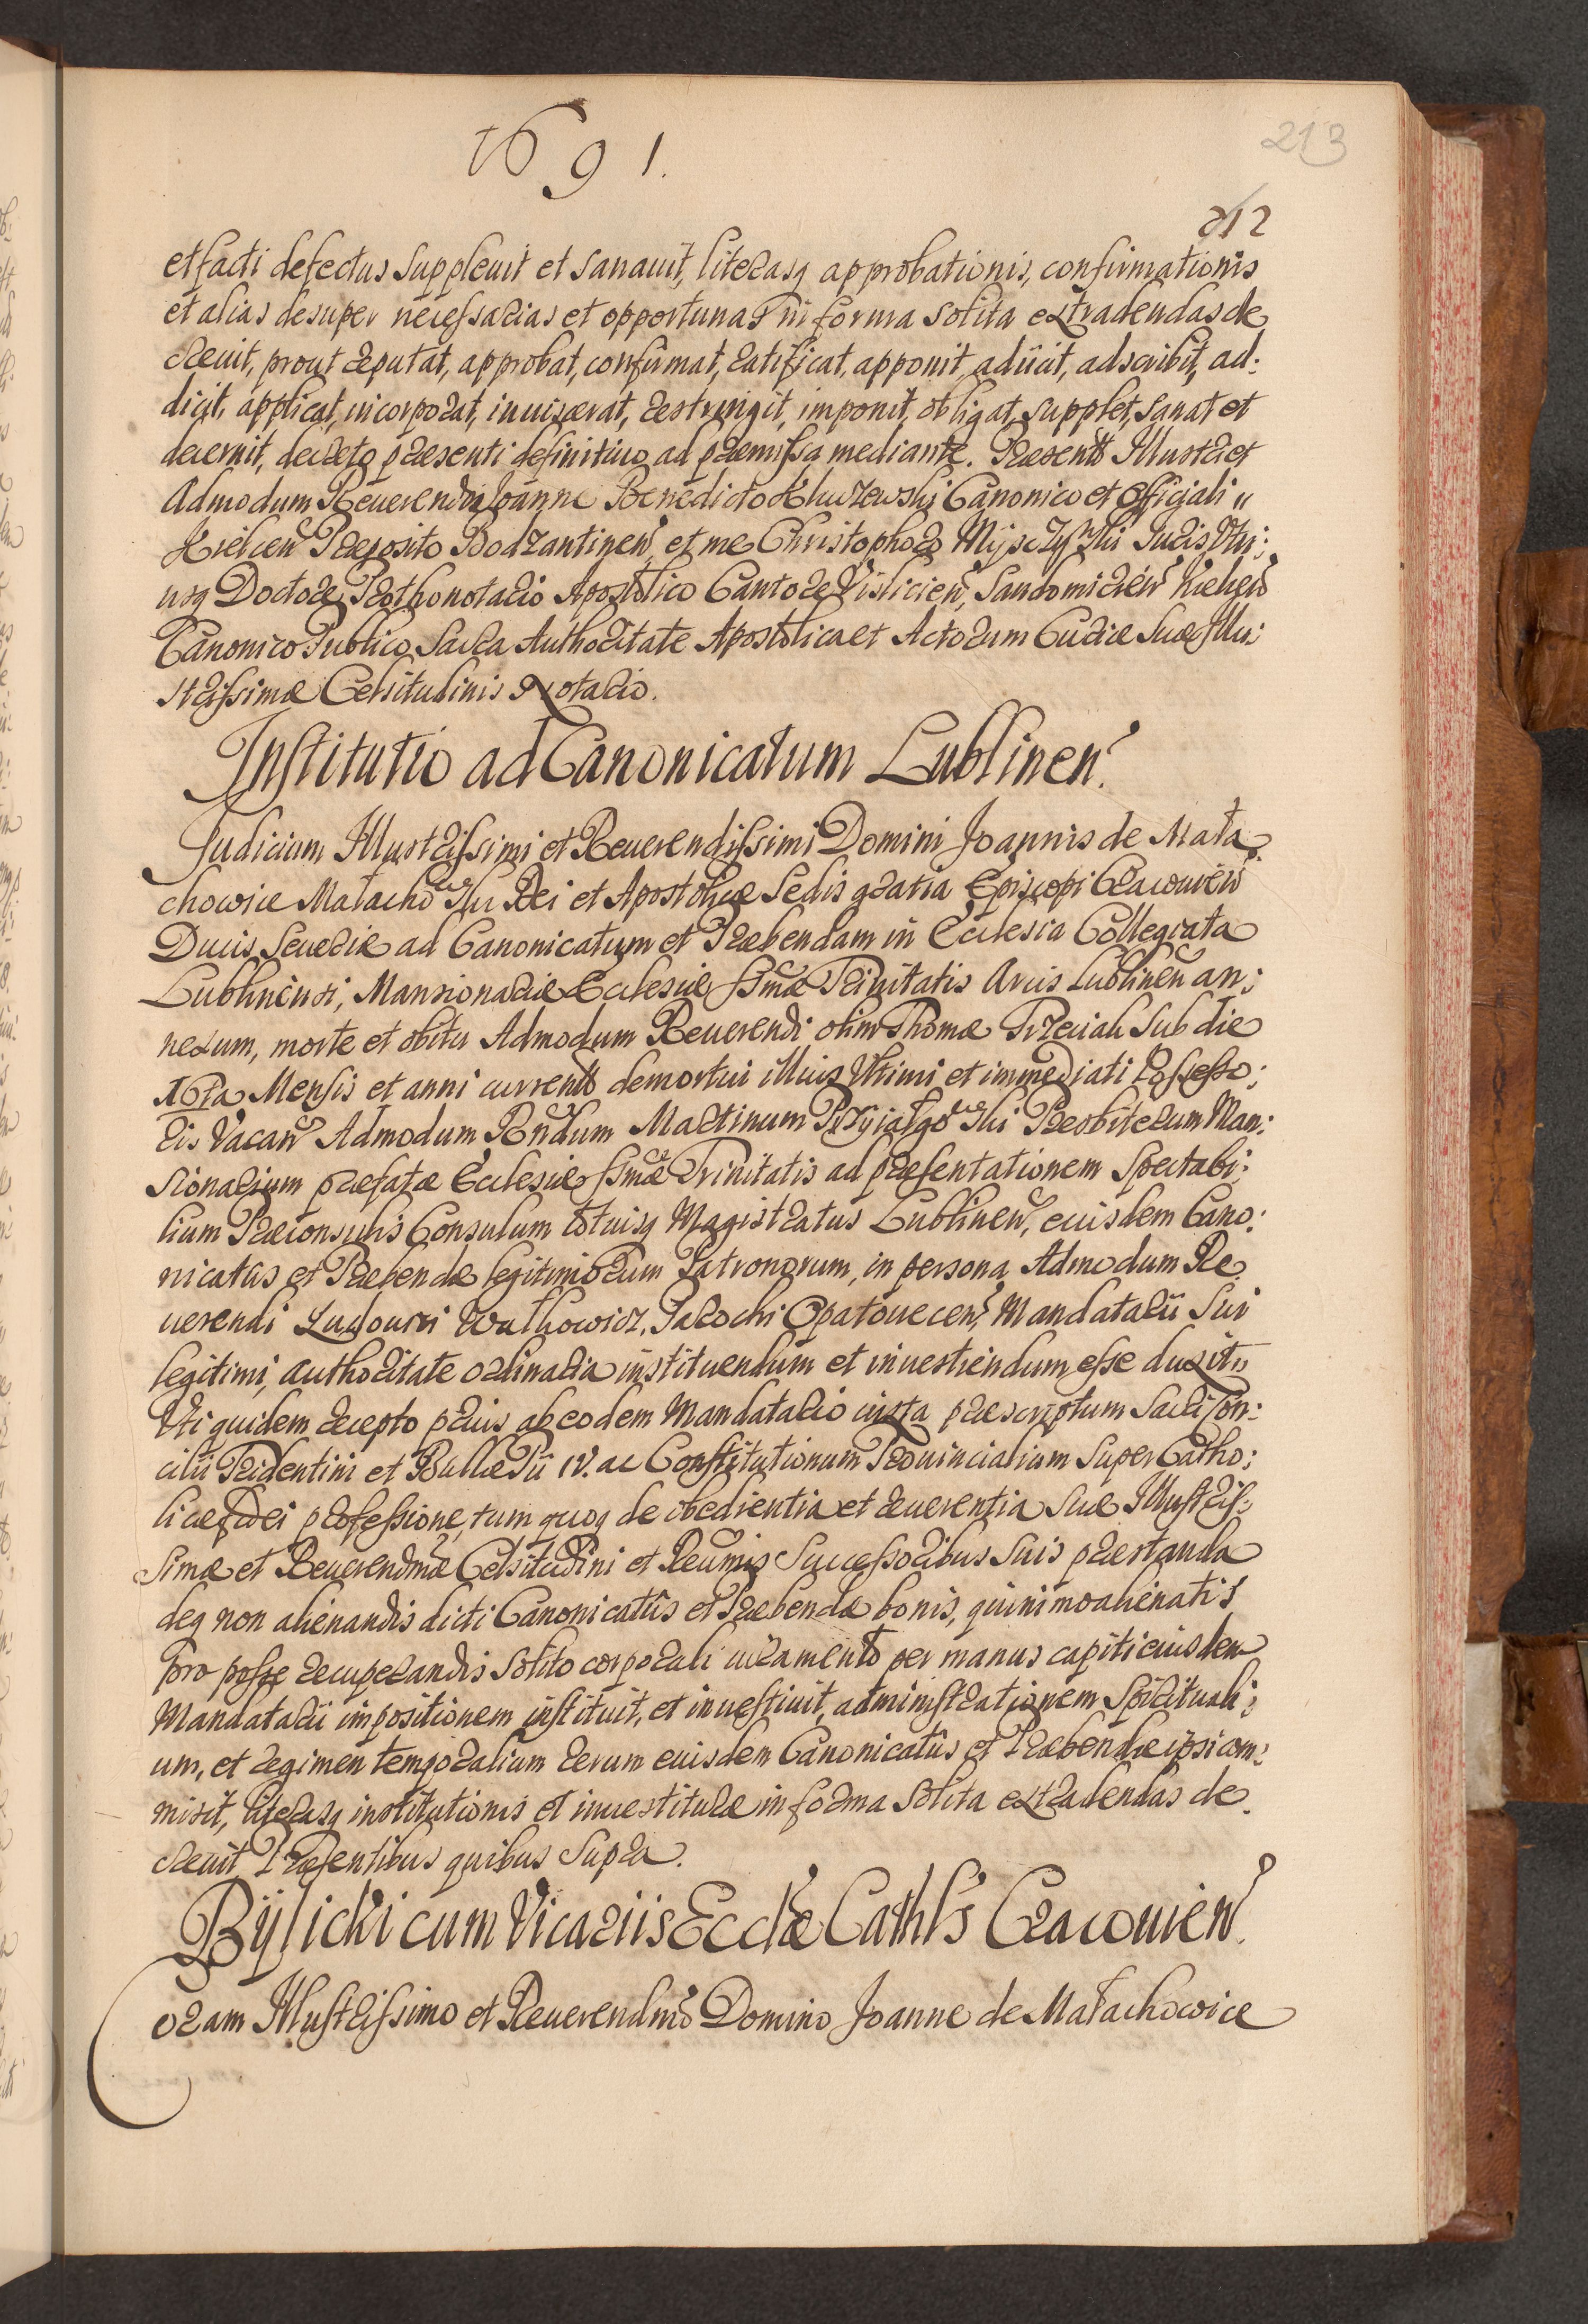 1691.
213
212
et facti defectus suppleuit et sanauit, literasq approbationis, confirmationis
et alias desuper necessarias et opportunas in forma solita extradendas de
creuit, prout reputat, approbat, confirmat, ratificat, apponit, adiicit, adscribit, ad:
dicit, applicat, incorporat, inuiscerat, restringit, imponit, obligat, supplet, sanat et
decernit, decreto praesenti definitiuo ad praemissa mediante. Praesentt Illustri et
Admodum Reuerendis Ioanne Benedicto Kluczewski Canonico et Officiali
Kielcen Praeposito Bodzantinen, et me Christophoro Mijsczyski Iuris Vtri:
usq Doctore, Prothonotario Apostolico Cantore Vislicien, Sandomirien Kielcen
Canonico Publico Sacra Authoritate Apostolica et Actorum Curiae Suae Illu:
strissimae Celsitudinis Notario.
Institutio ad Canonicatum Lublinen.
Judicium Illustrissimi et Reuerendissimi Domini Joannis de Mała
chowice Małachowski Dei et Apostolicae Sedis gratia Episcopi Cracouien
Ducis Seueriae ad Canonicatum et Praebendam in Ecclesia Collegiata
Lublinensi, Mansionariae Ecclesiae SSmae Trinitatis Arcis Lublinen an:
nexum, morte et obitu Admodum Reuerendi olim Thomae Trzeciak sub die
16ta Mensis et anni currentt demortui illius Vltimi et immediati Possesso:
ris Vacan Admodum Rndum Martinum Przyiałgowski Praesbiterum Man:
sionarium praefatae Ecclesiae SSmae Trinitatis ad praesentationem Spectabi:
lium Praeconsulis Consulum totiusq Magistratus Lublinen, euisdem Cano:
nicatus et Praebendae legitimorum Patronorum, in persona Admodum Re
uerendi Ludouici Wulkowicz, Parochi Opatouecen, Mandatarii Sui
legitimi, authoritate ordinaria instituendum et inuestiendum esse duxit,
Vti quidem recepto prius ab eodem Mandatario iuxta praescriptum Sacri Con:
cilii Tridentini et Bullae Pii IV. ac Constitutionum Prouincialium super Catho:
licae fidei professione, tum quoq de obedientia et reuerentia Suae Illustris:
simae et Reuerendmae Celsitudini et Reumis Successoribus Suis praestanda
deq non alienandis dicti Canonicatus et Praebendae bonis, quinimo alienatis
pro posse recuperandis solito corporali iuramento per manus capiti eiusdem
Mandatarii impositionem instituit, et inuestiuit, administrationem Spirituali:
um, et regimen temporalium rerum euisdem Canonicatus et Praebendae ipsi com:
misit, literasq institutionis et inuestiturae in forma solita extradendas de
creuit Praesentibus quibus supra.
Bijlicki cum Vicariis Ecclae Cathlis Cracouien.
Coram Illustrissimo et Reuerendmo Domino Joanne de Małachowice